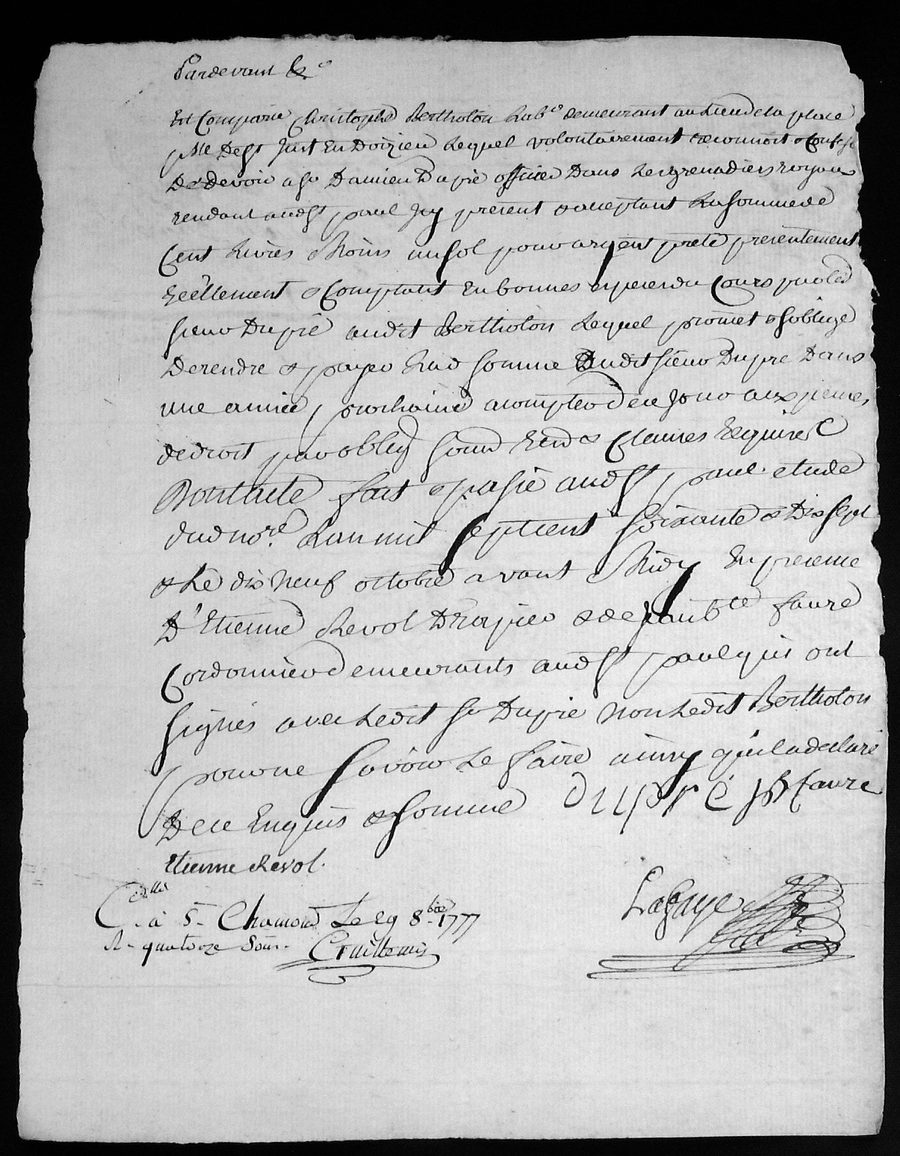 Pardevant &c
Est Comparu Christophe Bertholon Lab.r demeurant au Lieu de la place
psse De St Just En Doizieu Lequel volontairement reconnoit & Confesse
De devoir a Sr Damien Dupré officier Dans Les grenadiers royaux
rendant aud St paul Icy present & acceptant La somme de
Cent Livres Moins un sol pour argent prete presentement
Reéllement & Comptant En bonnes especes du Cours par led
Sieur Dupré audit Bertholon Lequel promet & soblige
De rendre & payer Lad somme Audit Sieur Dupre Dans
une année prochaine a compter de ce Jour aux peines
de droit par oblig Soum Ren & Clauses Requises
Dont acte fait & passé aud St paul etude
dud no.re Lan mil Sept Cent Soixante & Dix Sept
& Le dix Neuf octobre avant Midy En presence
D'Etienne Revol Drapier & de Jean bte faure
Cordonnier demeurants aud St paul qui ont
Signés avec Ledit Sr Dupré Non Ledit Bertholon
pour ne Savoir Le faire ainsy quil a declaré
De ce Enquis & Sommé Dupré jb faure
Etienne Revol.
C.ellé à St Chamond Le 29 8bre 1777
R. quatorze Sous.
Lafaye